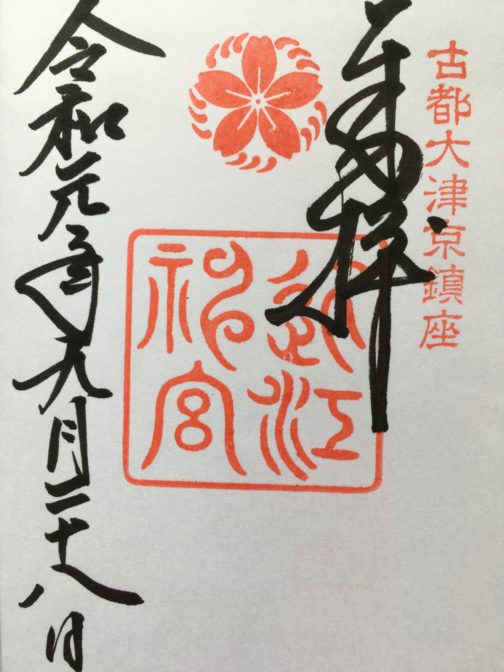 古都大津京鎮座
奉拝
近江
神宮
令和元年九月二十八日